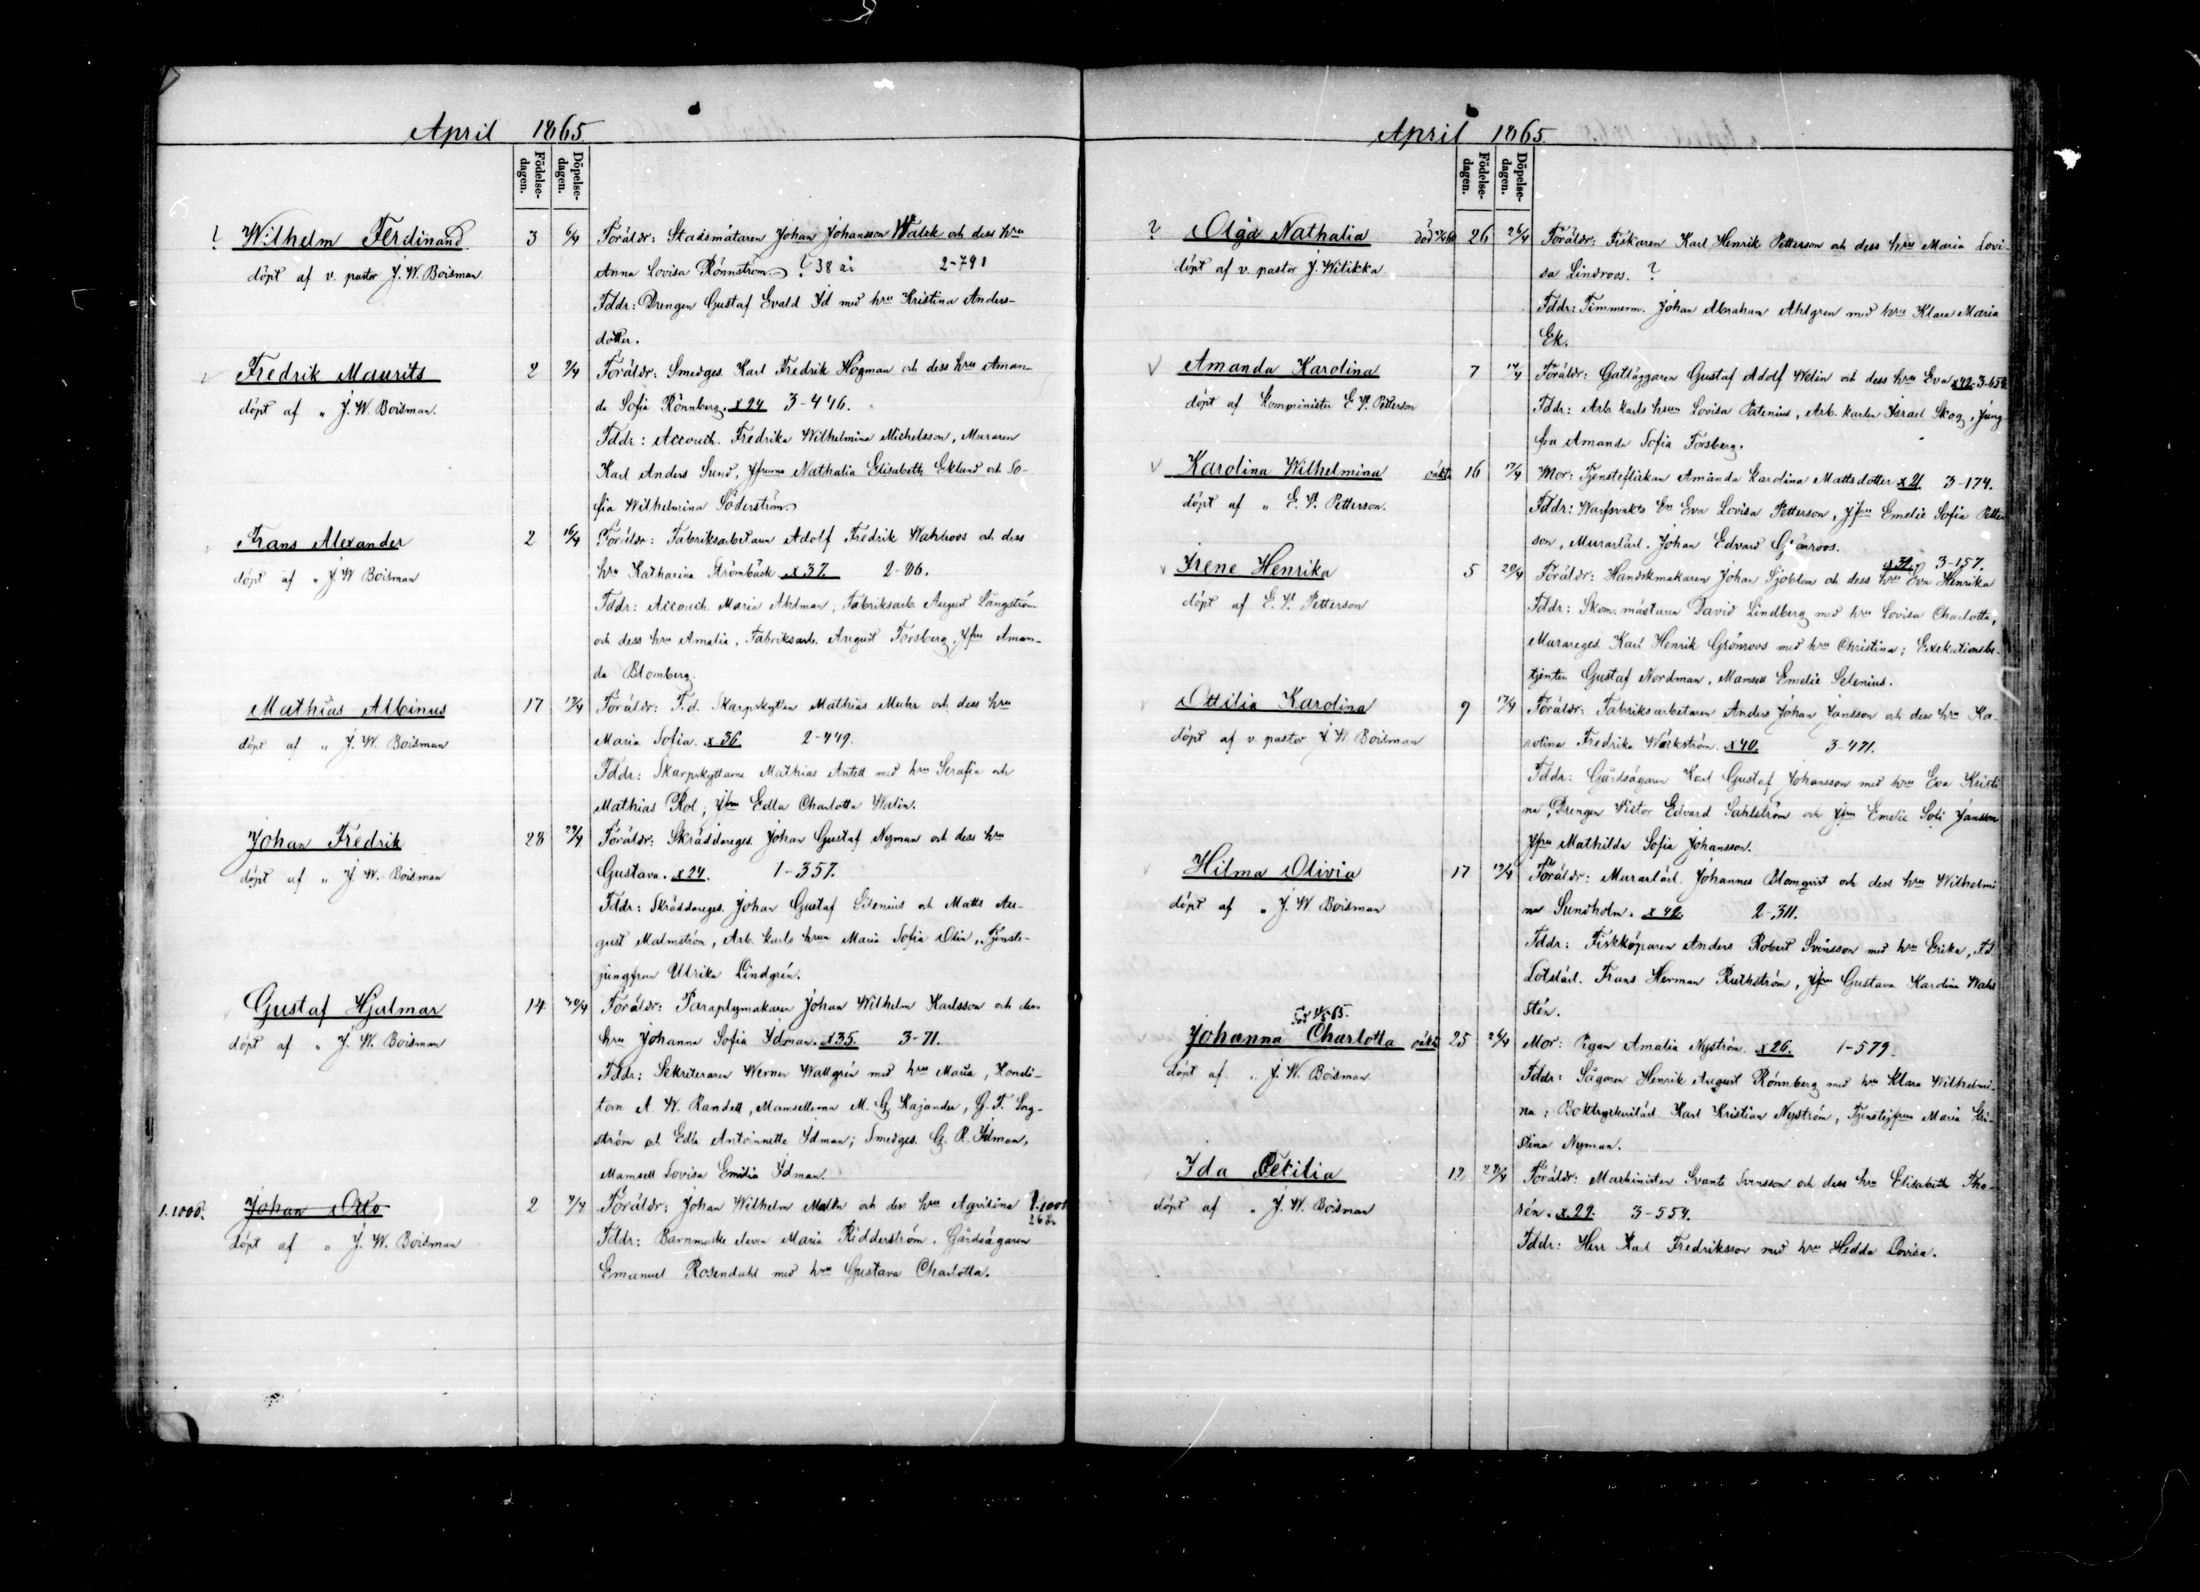 April 1865.
Födelse-
dagen.
Döpelse-
dagen.
? Wilhelm Ferdinand 3 6/4 Föräldr: Stadsmätaren Johan Johansson Walck och dess hru
döpt af v. pastor J. W. Boisman Anna Lovisa Rönnström ? 38 år 2-791
Fddr: Drengen Gustaf Evald Id med hru Kristina Anders-
dotter.
Fredrik Maurits 2 9/4 Föräldr: Smedges. Karl Fredrik Högman och dess hru Aman-
döpt af „ J. W. Boisman. da Sofia Rönnberg. x24 3-446.
Fddr: Accouch. Fredrika Wilhelmina Michelsson, Muraren
Karl Anders Sund, Jfruarna Nathalia Elisabeth Eklund och So-
fia Wilhelmina Söderström
Frans Alexander 2 16/4 Föräldr: Fabriksarbetaren Adolf Fredrik Wahlroos och dess
döpt af „ J W Boisman hru Katharina Strömbäck x37. 2-86.
Fddr: Accouch. Maria Ahlman, Fabriksarb. August Långström
och dess hru Amalia, Fabriksarb. August Forsberg, Jfru Aman-
da Blomberg.
Mathias Albinus 17 19/4 Föräldr: F.d. Skarpskytten Mathias Muhr och dess hru
döpt af „ J. W. Boisman Maria Sofia. x36 2-449.
Fddr: Skarpskyttarne Mathias Antell med hru Serafia och
Mathias Rol, Jfru Edla Charlotta Walin.
Johan Fredrik 28 29/4 Föräldr: Skräddareges. Johan Gustaf Nyman och dess hru
döpt af „ J. W. Boisman Gustava. x24. 1-357.
Fddr: Skräddareges. Johan Gustaf Silenius och Matts Au-
gust Malmström, Arb. karls hrun Maria Sofia Olin, Tjenste-
jungfrun Ulrika Lindgrén.
Gustaf Hjalmar 14 30/4 Föräldr: Paraplymakaren Johan Wilhelm Karlsson och dess
döpt af „ J. W. Boisman hru Johanna Sofia Idman. x35. 3-71.
Fddr: Sekreteraren Werner Wallgrén med hru Maria, Kondi-
torn A. W. Randell, Mamsellerna M. G. Kajander, G. F. Eng-
ström och Edla Antoinnette Idman; Smedges. G. R. Idman,
Mamsell Lovisa Emilia Idman.
1.1000. Johan Otto 2 9/4 Föräldr: Johan Wilhelm Malm och dess hru Agvilina 1.1000
26 år
döpt af „ J. W. Boisman Fddr: Barnmorske eleven Maria Ridderström, Gårdsägaren
Emanuel Rosendahl med hru Gustava Charlotta.
April 1865.
Födelse-
dagen.
Döpelse-
dagen.
? Olga Nathalia död 26 26/4 Föräldr: Fiskaren Karl Henrik Petterson och dess hru Maria Lovi-
döpt af v. pastor J. Witikka sa Lindroos. ?
Fddr: Timmerm. Johan Abraham Ahlgren med hru Klara Maria
Ek.
Amanda Karolina 7 14/4 Föräldr: Gatläggaren Gustaf Adolf Welin och dess hru Eva x42. 3-658
döpt af Komminister E. V. Petterson Fddr: Arb. karls hrun Lovisa Patenius, Arb. karlen Israel Skog, Jung-
fru Amanda Sofia Forsberg.
Karolina Wilhelmina oäkta 16 17/4 Mor: Tjensteflickan Amanda Karolina Mattsdotter x21 3-174.
döpt af „ E. V. Petterson. Fddr: Warfsvakts En Eva Lovisa Petterson, Jfru Emelie Sofia Petter
son, Murarlärl. Johan Edvard Grönroos.
x32. 3-157.
Irene Henrika 5 20/4 Föräldr: Handskmakaren Johan Sjöblom och dess hru Eva Henrika
döpt af E. V. Petterson Fddr: Skom.mästaren David Lindberg med hru Lovisa Charlotta,
Murareges. Karl Henrik Grönroos med hru Christina; Exekutionsbe-
tjenten Gustaf Nordman, Mamsell Emelie Selenius.
Ottilia Karolina 9 17/4 Föräldr: Fabriksarbetaren Anders Johan Jansson och dess hru Ka-
döpt af v. pastor J. W. Boisman rolina Fredrika Wärkström. x40. 3-471.
Fddr: Gårdsägaren Karl Gustaf Johansson med hru Eva Kristi
na, Drengen Victor Edvard Sahlström och Jfru Emelie Sofi Jansson
Jfru Mathilda Sofia Johansson.
Hilma Olivia 17 19/4 Föräldr: Murarlärl. Johannes Blomqvist och dess hru Wilhelmi
döpt af „ J. W. Boisman na Sundholm. x42. 2-311.
Fddr: Fiskköparen Anders Robert Svensson med hru Erika, F.d.
Lotslärl. Frans Herman Ruthström, Jfru Gustava Karolina Wahl
stén.
Johanna Charlotta oäkta 25 26/4 Mor: Pigan Amalia Nyström x26. 1-579.
döpt af „ J. W. Boisman Fddr: Sågaren Henrik August Rönnberg med hru Klara Wilhelmi-
na; Boktryckerilärl. Karl Kristian Nyström, Tjenstejfrun Maria Kri-
stina Nyman.
Ida Cecilia 12 28/4 Föräldr: Maskinisten Svante Svensson och dess hru Elisabeth Tho-
döpt af „ J. W. Boisman rén. x29. 3-554.
Fddr: Herr Karl Fredriksson med hru Hedda Lovisa.